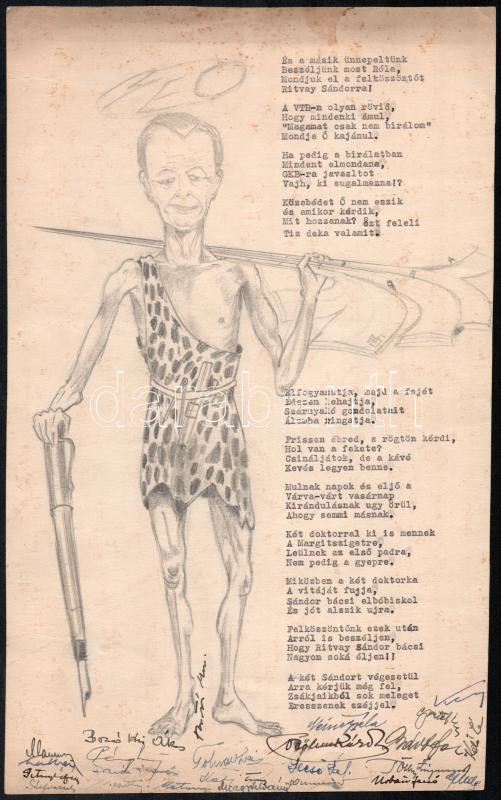 És a másik ünnepeltünk
Beszéljünk most Róla,
Mondjuk el a felköszöntőt
Ritvay Sándorra!
A VTB-n olyan rövid,
Hogy mindenki ámul,
"Magamat csak nem birálom"
Mondja Ő kajánul.
Ha pedig a birálatban
Mindent elmondana,
GKB-ra javasltot
Vajh, ki sugalmazna!?
Közebédet Ő nem eszik
és amikor kérdik,
Mit hozzanak? ezt feleli
Tiz deka valamit.
Elfogyasztja, majd a fejét
lehajtja,
Szárnyaló gondolatait
Álomba ringatja.
Frissen ébred, s rögtön kérdi,
Hol van a fekete?
Csináljátok, de a kávé
Kevés legyen benne.
Mulnak napok és eljő a
Várva-várt vasárnap
Kirándulásnak ugy örül,
Ahogy semmi másnak.
Két doktorral ki is mennek
A Margitszigetre,
Leülnek az első padra,
Nem pedig a gyepre.
Miközben a két doktorka
A vitáját fujja,
Sándor bácsi elbóbiskol
És jót alszik ujra.
Felköszöntőnk ezek után
Arról is beszéljen,
Hogy Ritvay Sándor bácsi
Nagyon soká éljen!!
A két Sándort végezetül
Arra kérjük még fel,
Zsákjaikból sok meleget
Eresszenek széjjel.
darabanth